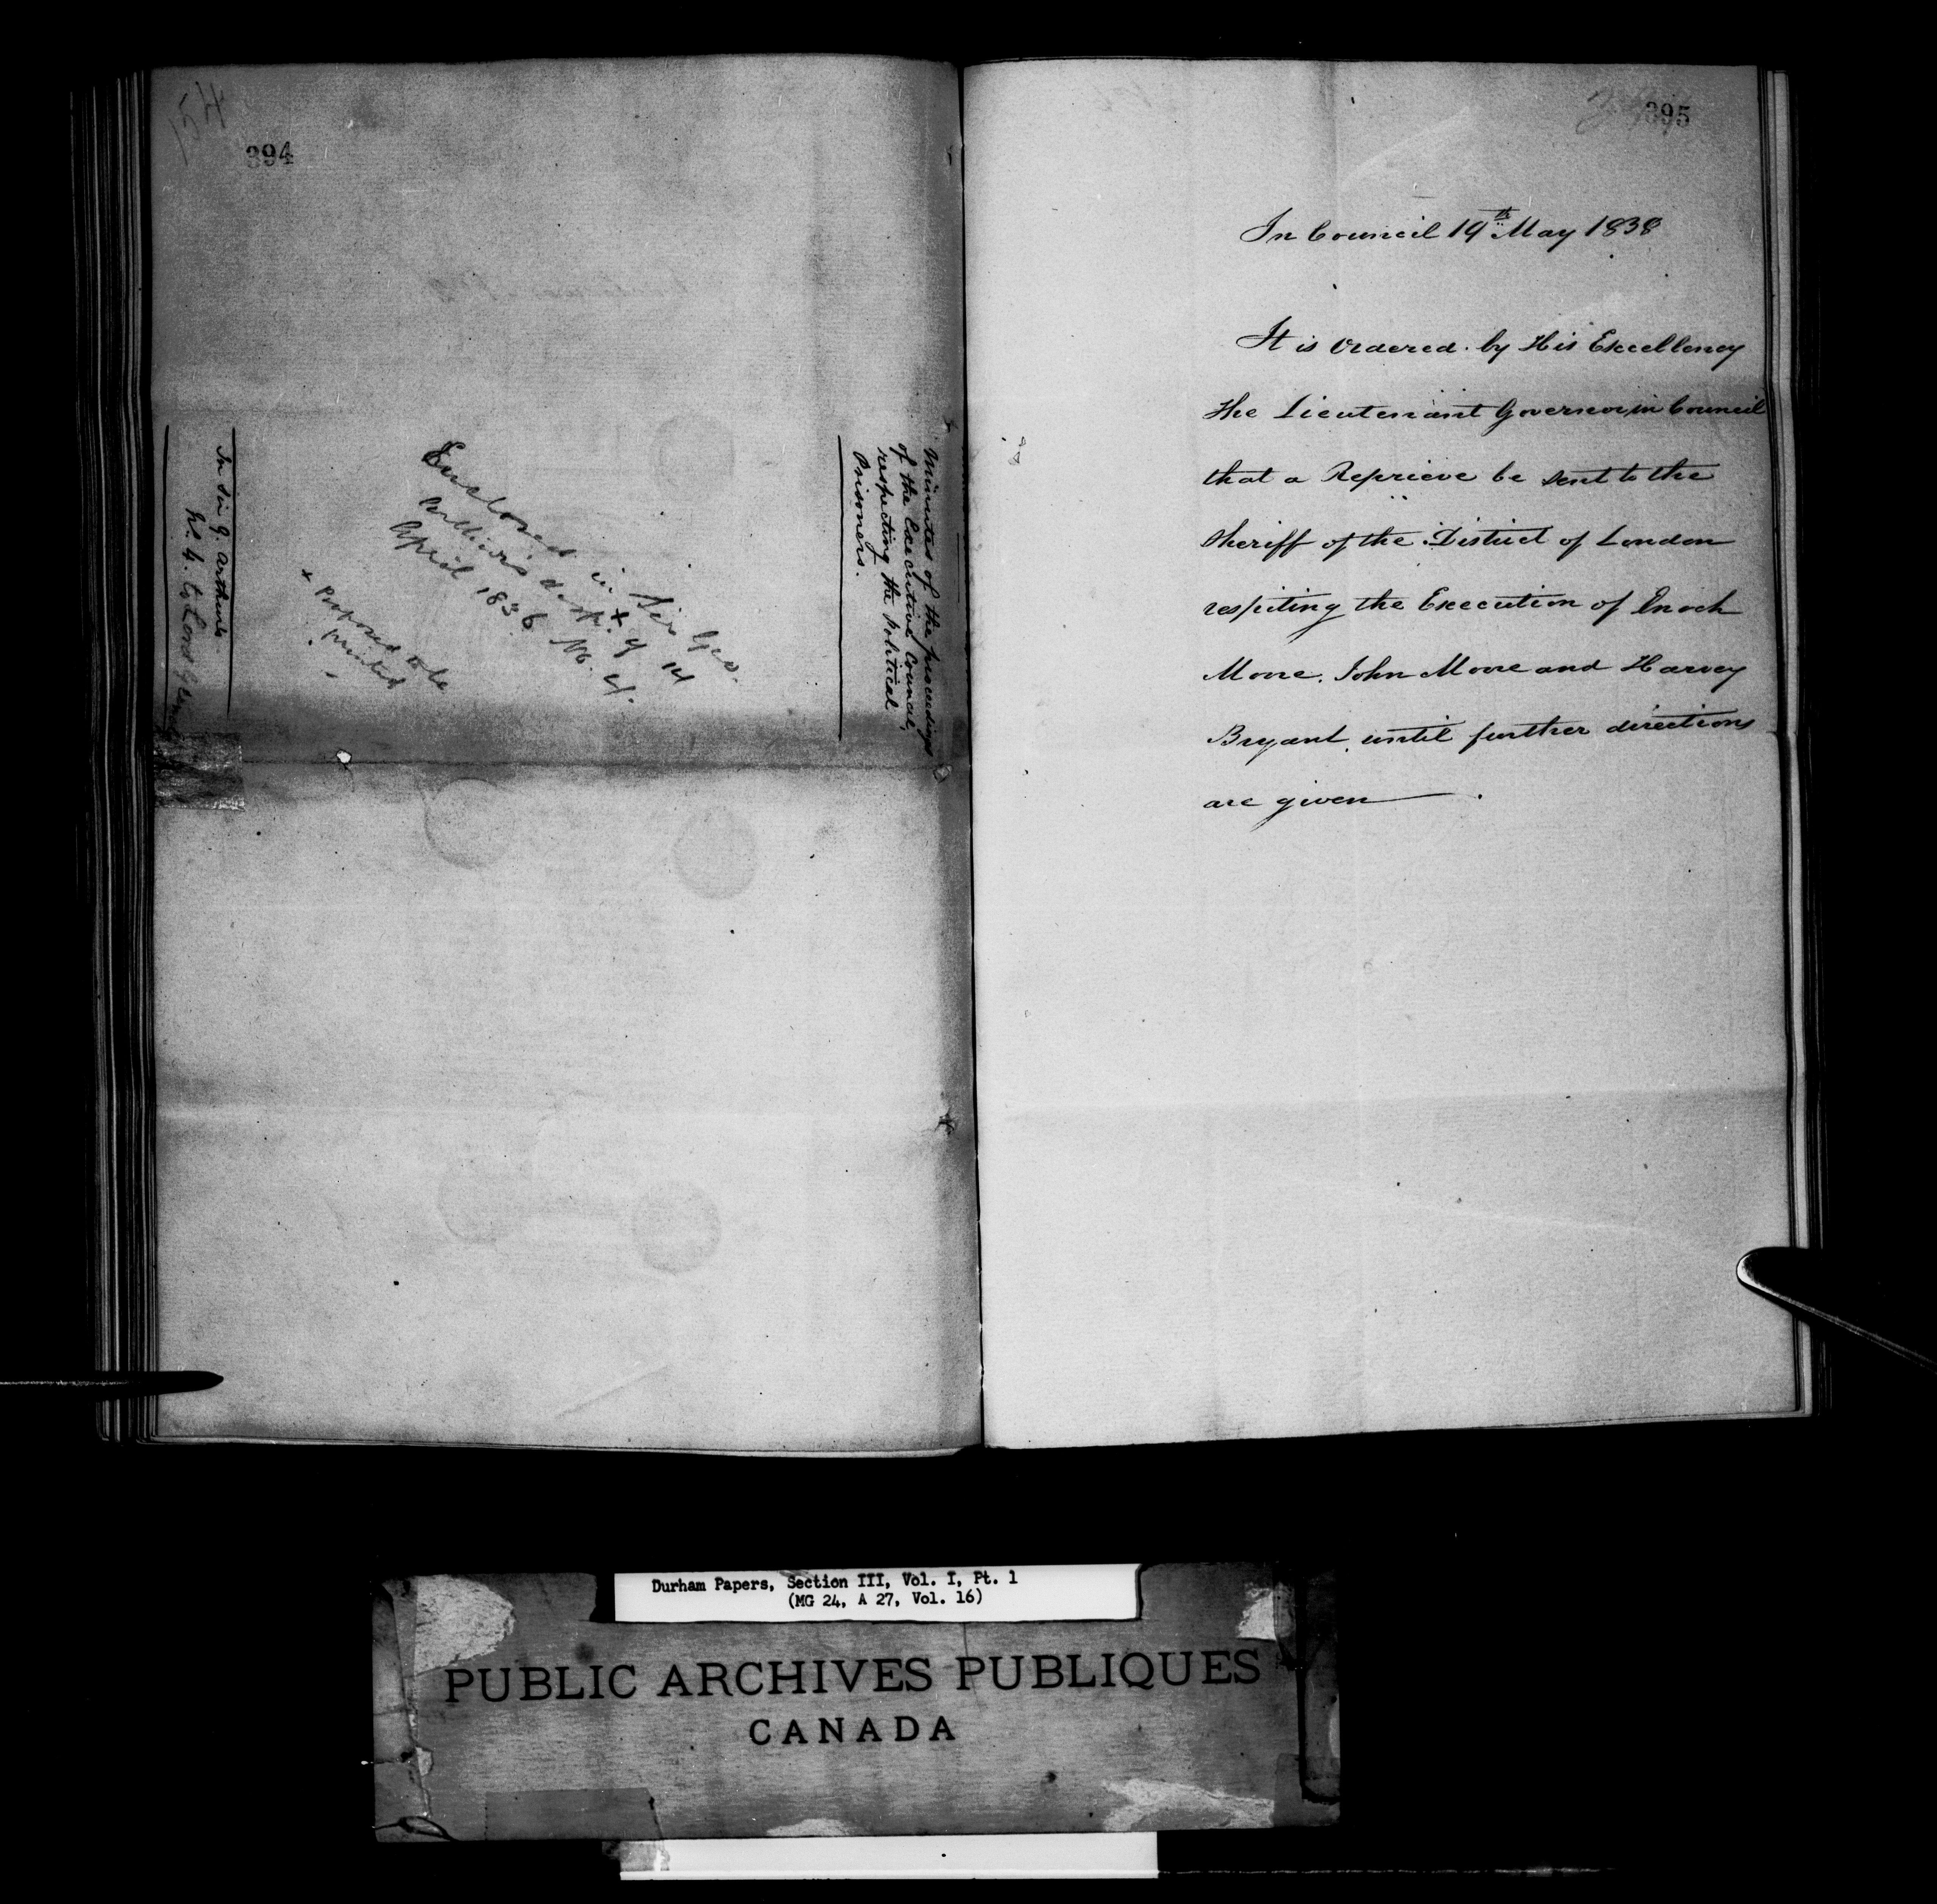 394
Minutes of the proceedings
of the Executive Council,
respecting the Political
Prisoners.
Enclosed in Sir Geo.
Arthur's desp. of 14 +
April 1838 No. 4.
+ Proposed to be
printed
In Sir G. Arthur's
No. 4. to Lord
395
In Council 19th May 1838
It is Ordered by His Excellency
the Lieutenant Governor in Council
that a Reprieve be sent to the
Sheriff of the District of London
respiting the Execution of Enoch
Moore. John Moore and Harvey
Bryant until further directions
are given
Durham Papers, Section III, Vol. I, Pt. 1
(MG 24, A 27, Vol. 16)
PUBLIC ARCHIVES PUBLIQUES
CANADA